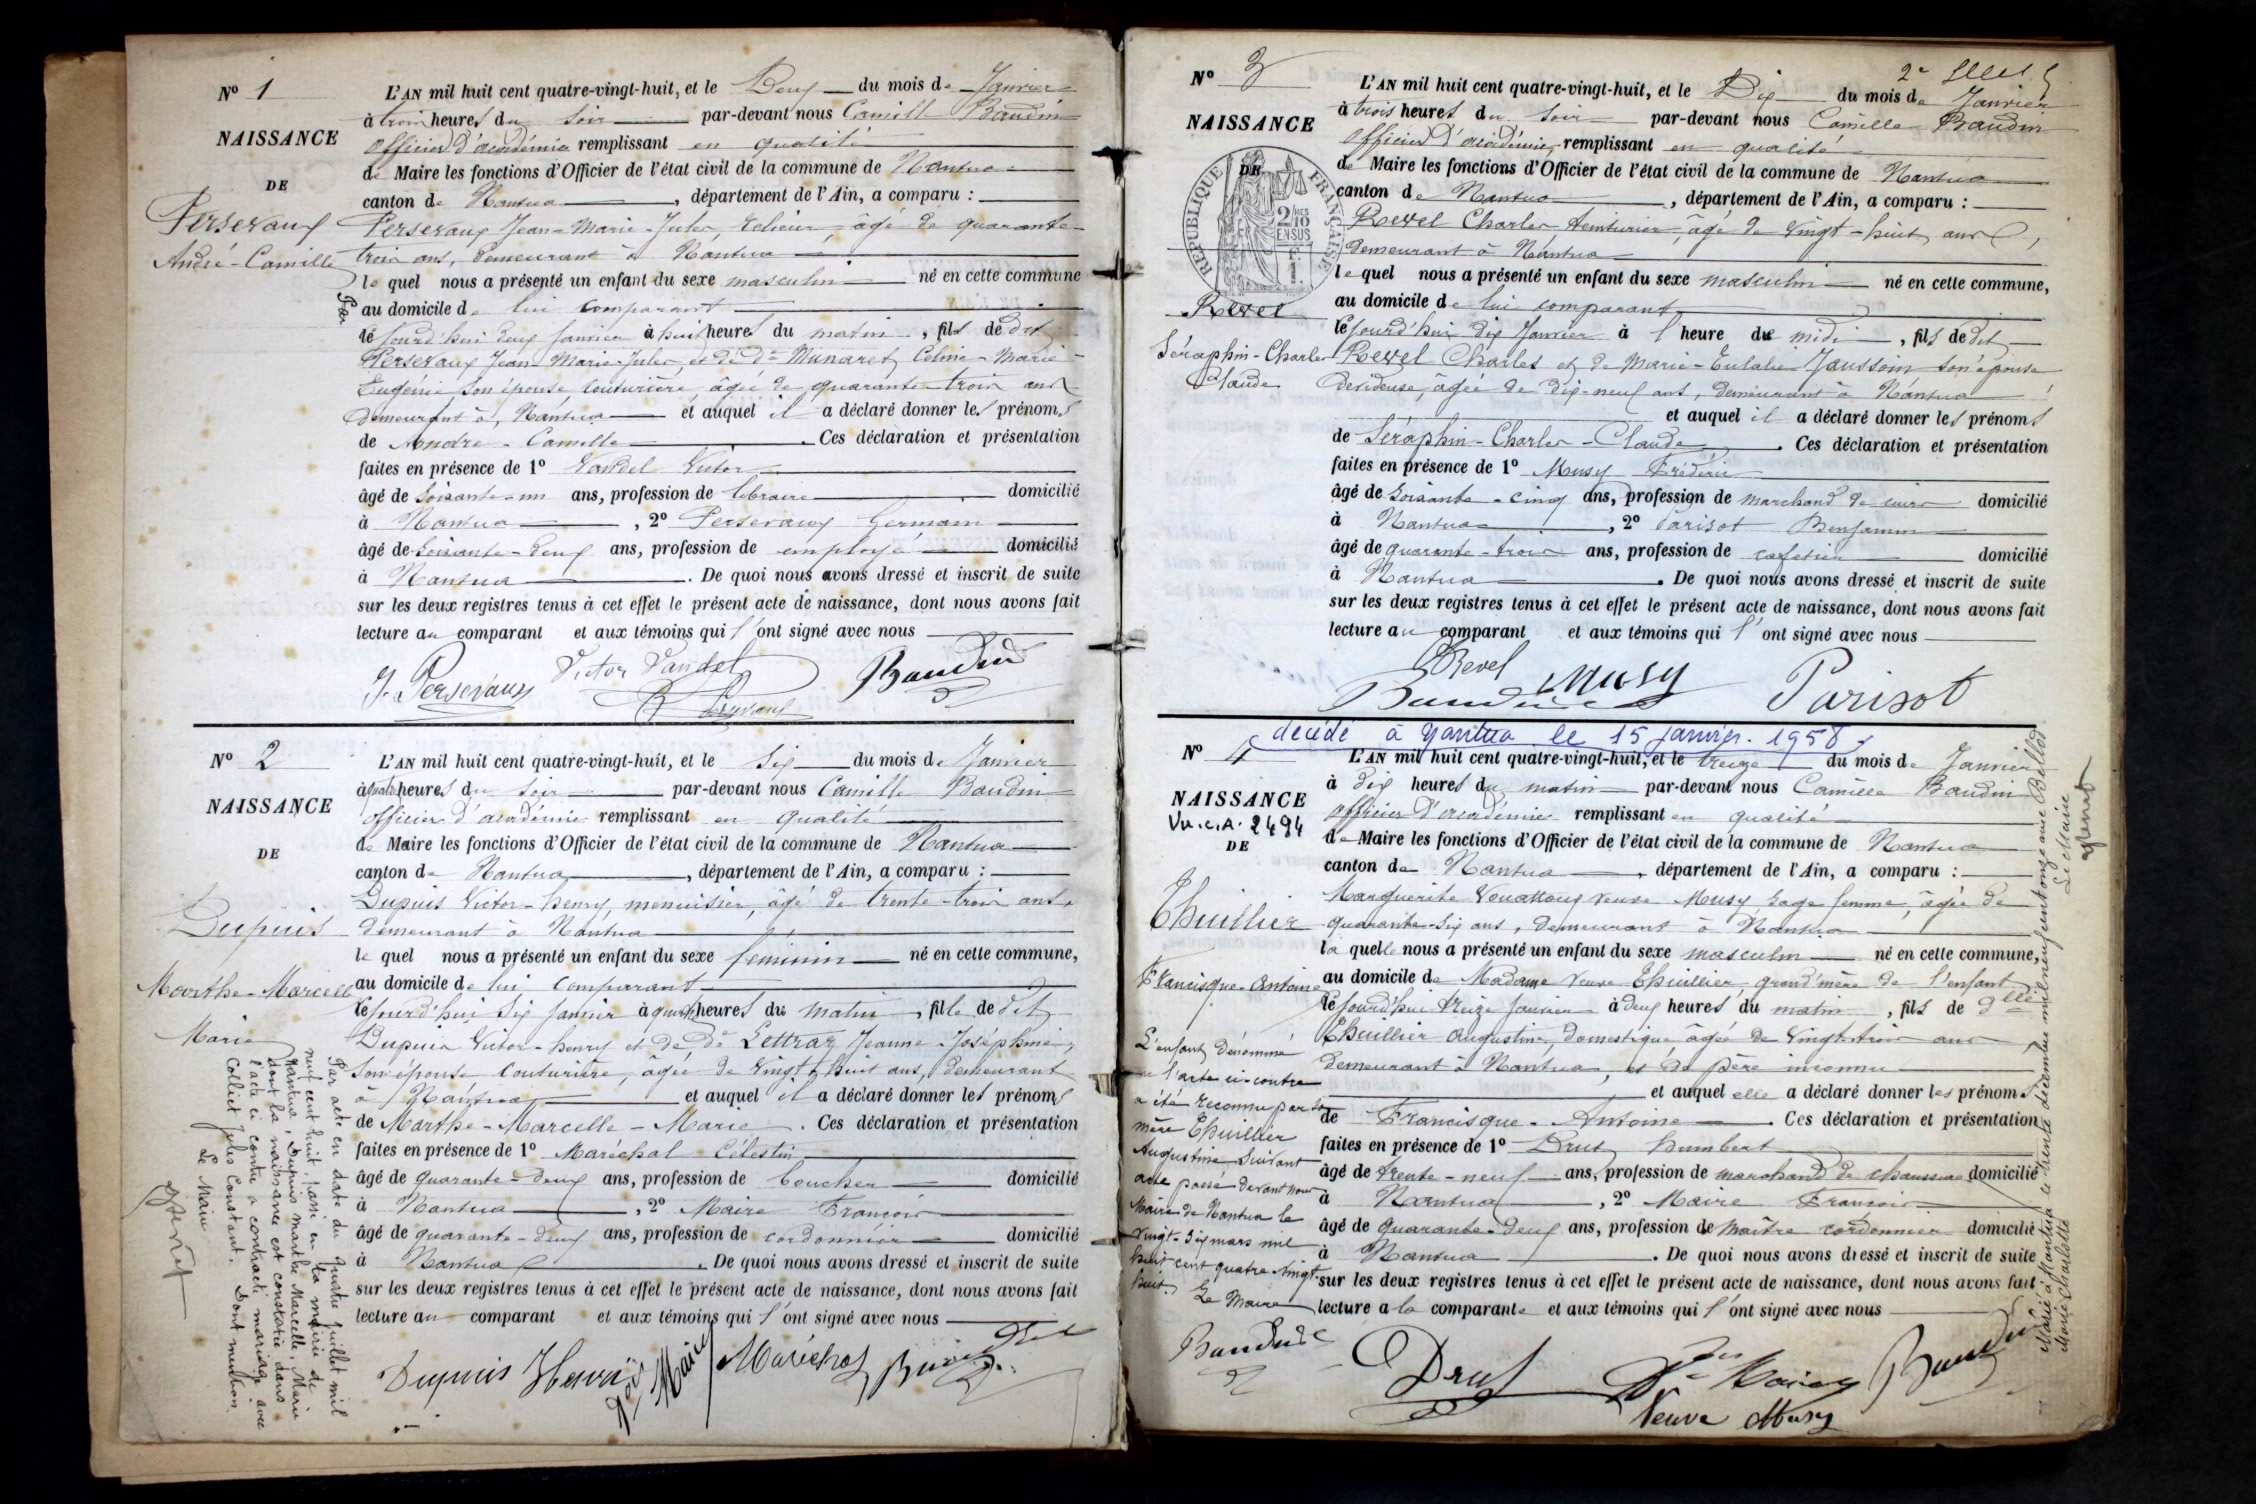 N° 1
NAISSANCE
DE
Perseraux
André-Camille
L'AN mil huit cent quatre-vingt-huit, et le Deux du mois de Janvier
à trois heures du soir par-devant nous Camille Baudin
officier d'académie remplissant en qualité
de Maire les fonctions d'Officier de l'état civil de la commune de Nantua
canton de Nantua, département de l'Ain, a comparu :
Perseraux Jean-Marie-Jules, relieur, âgé de quarante-
trois ans, demeurant à Nantua
le quel nous a présenté un enfant du sexe masculin né en cette commune
au domicile de lui comparant
le jourd'hui deux janvier à huit heures du matin, fils de dit
Perseraux Jean-Marie-Jules, et de de Munaret Celine-Marie-
Eugenie son épouse, couturière, âgée de quarante-trois ans
demeurant à Nantua et auquel il a déclaré donner les prénoms
de André-Camille. Ces déclaration et présentation
faites en présence de 1° Vandel Victor
âgé de soixante-un ans, profession de libraire domicilié
à Nantua, 2° Perseraux Germain
âgé de soixante-deux ans, profession de employé domicilié
à Nantua. De quoi nous avons dressé et inscrit de suite
sur les deux registres tenus à cet effet le présent acte de naissance, dont nous avons fait
lecture au comparant et aux témoins qui l'ont signé avec nous
J. Perseraux Victor Vandel Baudin
N° 2
NAISSANCE
DE
Dupuis
Marthe-Marcelle
Marie
L'AN mil huit cent quatre-vingt-huit, et le six du mois de Janvier
à quatre heures du soir par-devant nous Camille Baudin
officier d'académie remplissant en qualité
de Maire les fonctions d'Officier de l'état civil de la commune de Nantua
canton de Nantua, département de l'Ain, a comparu :
Dupuis Victor-henry, menuisier, âgé de trente-trois ans,
demeurant à Nantua
le quel nous a présenté un enfant du sexe feminin né en cette commune,
au domicile de lui comparant
le jourd'hui six janvier à heures du matin, fille de dit
Dupuis Victor-henry et de de Lettraz Jeanne-Joséphine,
son épouse couturière, âgée de vingt-huit ans, demeurant
à Nantua et auquel il a déclaré donner les prénoms
de Marthe-Marcelle-Marie. Ces déclaration et présentation
faites en présence de 1° Maréchal Célestin
âgé de quarante-deux ans, profession de boucher domicilié
à Nantua, 2° Maire François
âgé de quarante-deux ans, profession de cordonnier domicilié
à Nantua. De quoi nous avons dressé et inscrit de suite
sur les deux registres tenus à cet effet le présent acte de naissance, dont nous avons fait
lecture au comparant et aux témoins qui l'ont signé avec nous
Dupuis Henri Maire Maréchal Baudin
Par acte en date du quatre juillet mil
neuf cent huit, passé en la mairie de
Nantua, Dupuis Marthe Marcelle, Marie
dont la naissance est constatée dans
l'acte ci contre a contracté mariage avec
Colliet Jules Constant. Dont mention.
Le Maire
N° 3
NAISSANCE
DE
REPUBLIQUE FRANÇAISE
2/10 EN SUS
Revel
Séraphin-Charles
Claude
L'AN mil huit cent quatre-vingt-huit, et le Dix du mois de Janvier
à trois heures du soir par-devant nous Camille Baudin
officier d'académie, remplissant en qualité
de Maire les fonctions d'Officier de l'état civil de la commune de Nantua
canton de Nantua, département de l'Ain, a comparu :
Revel Charles teinturier, âgé de vingt-huit ans,
demeurant à Nantua
le quel nous a présenté un enfant du sexe masculin né en cette commune,
au domicile de lui comparant
le jourd'hui dix Janvier à l heure de midi, fils de dit
Revel Charles et de Marie-Eulalie Jaussoin son épouse
devideuse, âgée de dix-neuf ans, demeurant à Nantua
et auquel il a déclaré donner les prénoms
de Séraphin-Charles-Claude. Ces déclaration et présentation
faites en présence de 1° Musy Frédéric
âgé de soixante-cinq ans, profession de marchand de cuirs domicilié
à Nantua, 2° Parisot Benjamin
âgé de quarante-trois ans, profession de cafetier domicilié
à Nantua. De quoi nous avons dressé et inscrit de suite
sur les deux registres tenus à cet effet le présent acte de naissance, dont nous avons fait
lecture au comparant et aux témoins qui l'ont signé avec nous
Revel Musy Parisot
Baudin
décédé à Nantua le 15 janvier 1958
N° 4
NAISSANCE
Vu.c.A. 2494
DE
Thuillier
Francisque-Antoine
L'AN mil huit cent quatre-vingt-huit, et le treize du mois de Janvier
à dix heures du matin par-devant nous Camille Baudin
officier d'académie remplissant en qualité
de Maire les fonctions d'Officier de l'état civil de la commune de Nantua
canton de Nantua, département de l'Ain, a comparu :
Marguerite veuve Musy sage femme, âgée de
quarante-six ans, demeurant à Nantua
la quelle nous a présenté un enfant du sexe masculin né en cette commune,
au domicile de Madame veuve Thuillier, grand'mère de l'enfant
le jourd'hui treize janvier à deux heures du matin, fils de dlle
Thuillier Augustine, domestique âgée de vingt-trois ans
demeurant à Nantua, et de père inconnu
et auquel elle a déclaré donner les prénoms
de Francisque-Antoine. Ces déclaration et présentation
faites en présence de 1° Drut humbert
âgé de trente-neuf ans, profession de marchand de chaussures domicilié
à Nantua, 2° Maire François
âgé de quarante-deux ans, profession de maître cordonnier domicilié
à Nantua. De quoi nous avons dressé et inscrit de suite
sur les deux registres tenus à cet effet le présent acte de naissance, dont nous avons fait
lecture a la comparante et aux témoins qui l'ont signé avec nous
Drut Baudin
Veuve Musy
L'enfant dénommé
l'acte ci-contre
a été reconnu par sa
mère Thuillier
Augustine suivant
acte passé devant nous
Maire de Nantua le
vingt-six mars mil
huit cent quatre-vingt
huit. Le Maire
Baudin
Marié à Nantua le trente décembre mil neuf cent onze avec Bellod
Marie Charlotte
Le Maire